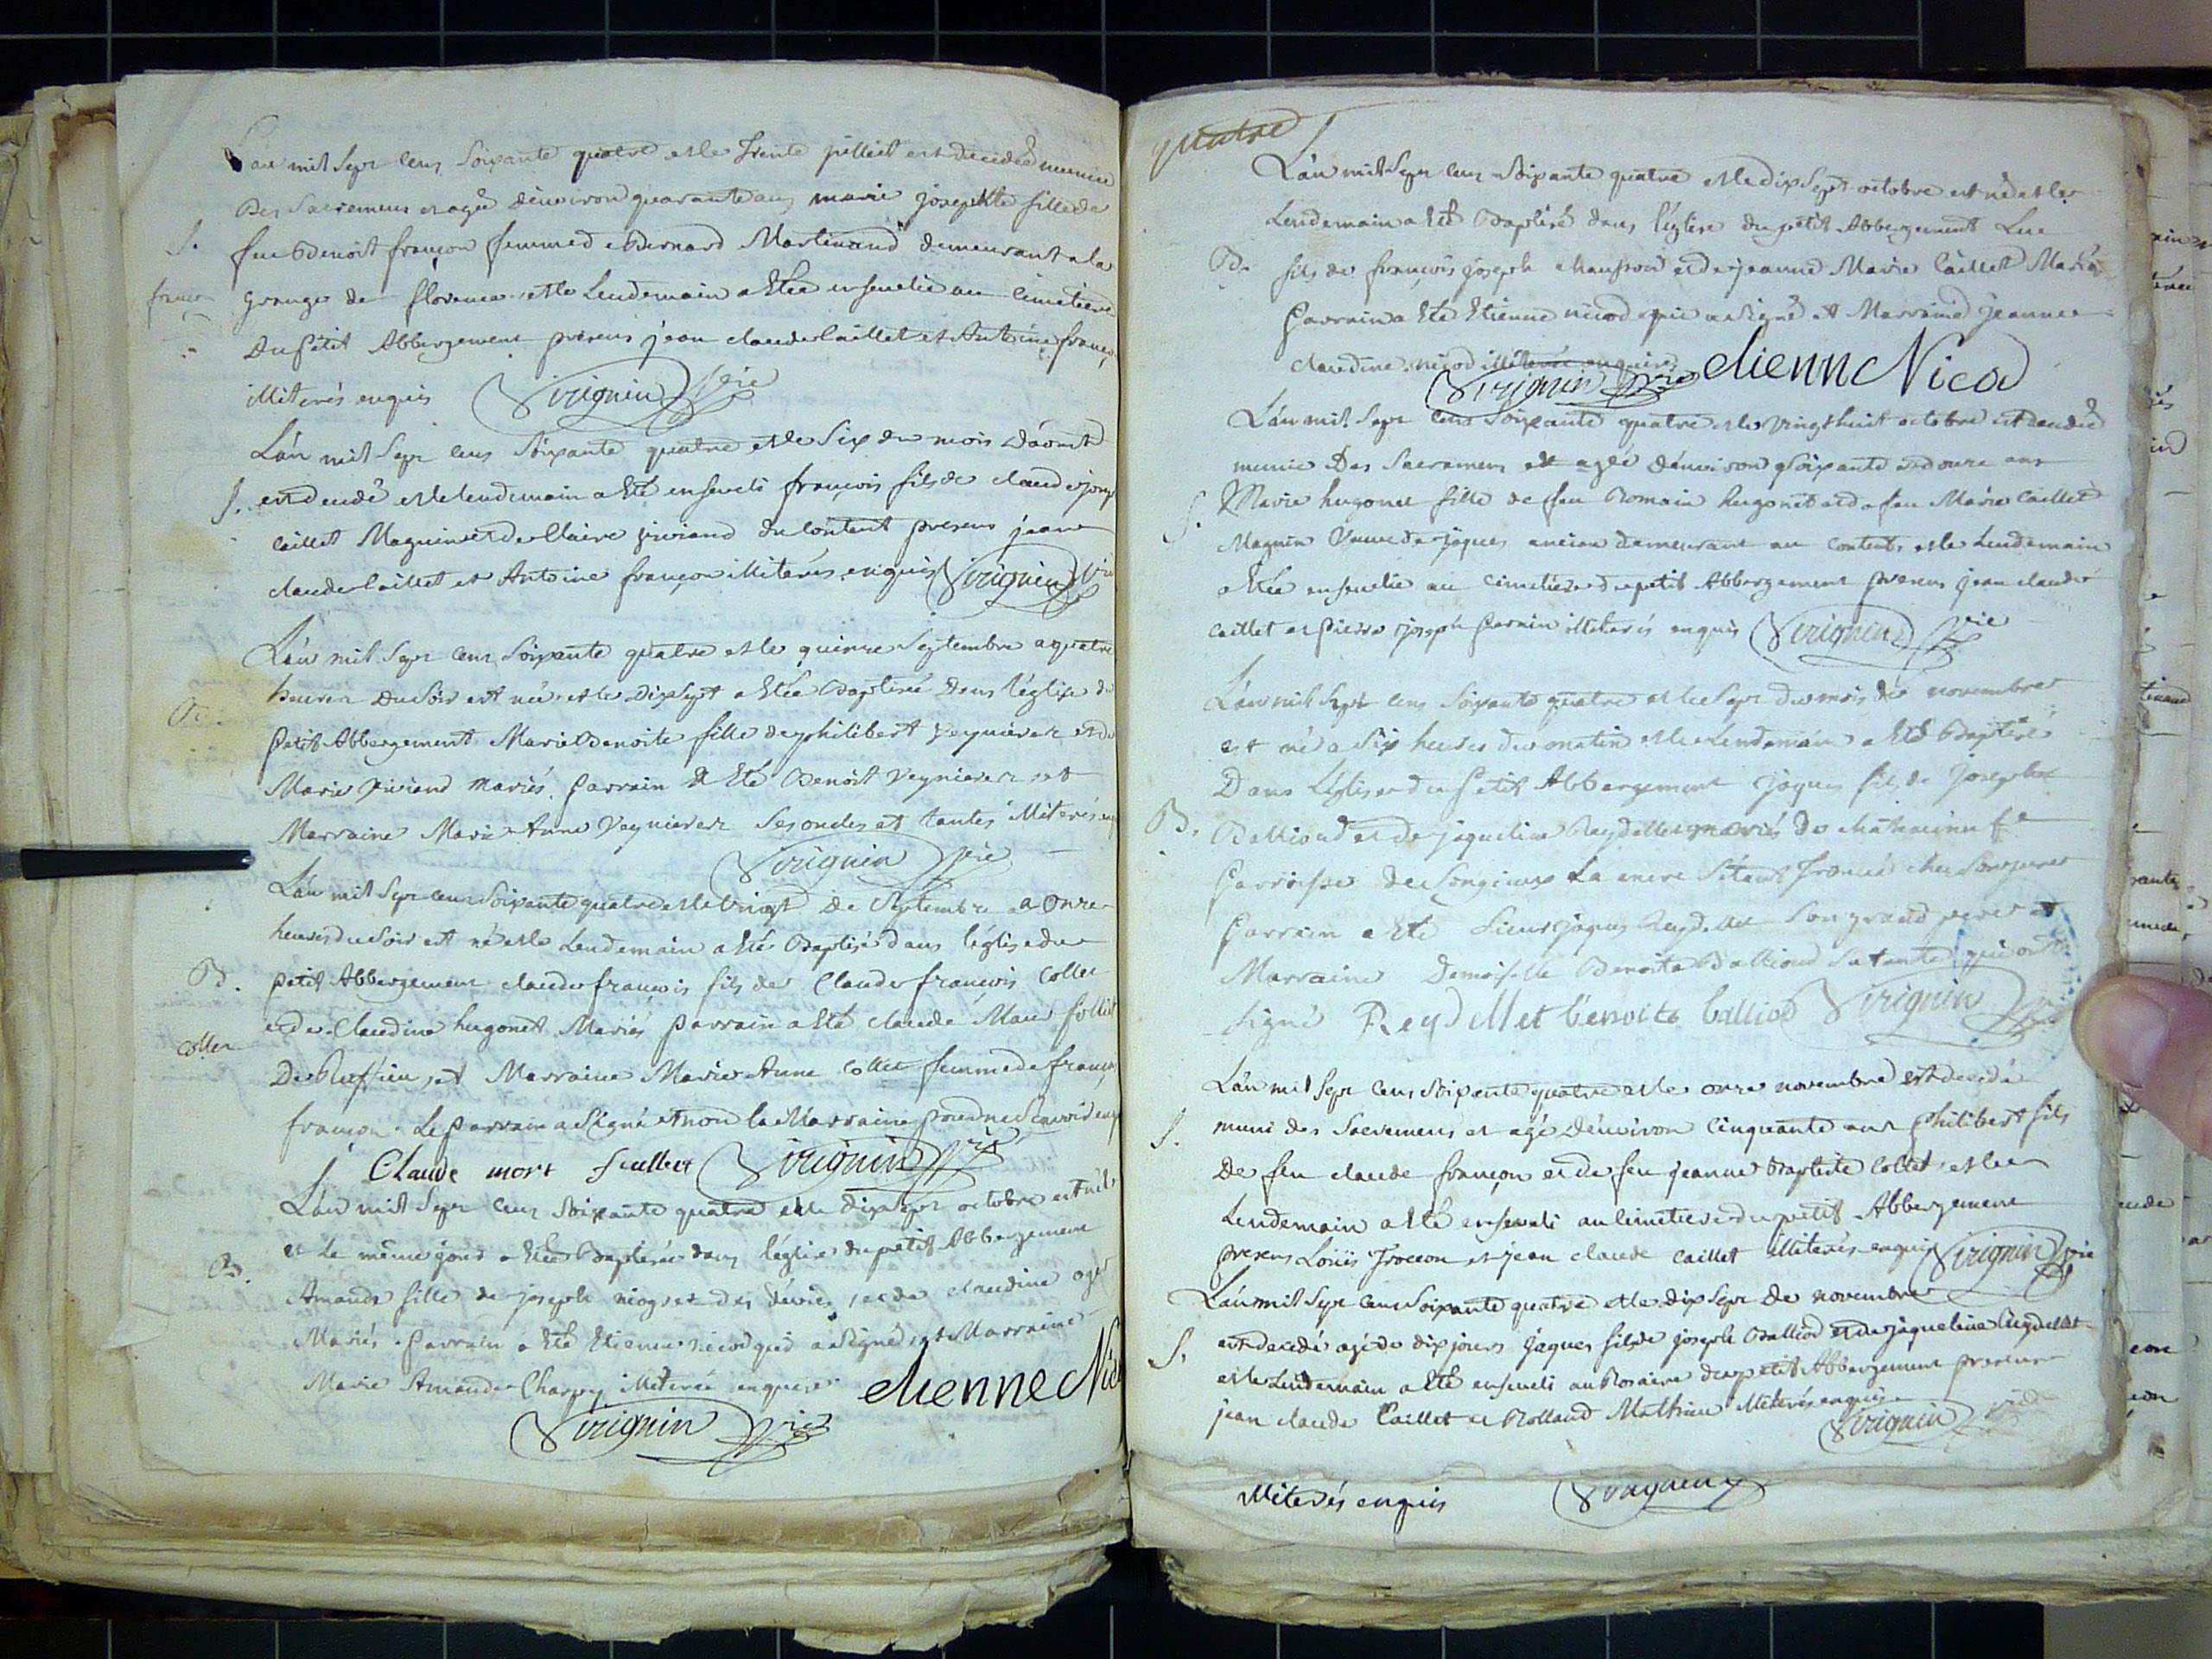 L'an mil sept cens soixante quatre et le trente juillet est decedeé munie
Des sacremens et ageé d'environ quarante ans marie josephte fille de
S. feu Benoit françon femme de Bernard Martinand demeurant a la
franço grange de florence et le Lendemain a Etée ensevelie au cimetiere
Du petit Abbergement presens jean claude Caillet et Antoine franço
illiterés enquis Virignin vic
L'an mil sept cens soixante quatre et le six du mois d'aout
S. est decedé et le lendemain a Eté enseveli françois fils de claude josep
Caillet Magnin et de Claire viviand du Content presens jean
claude Caillet et Antoine françon illiterés enquis Virignin vic
L'an mil sept cens soixante quatre et le quinze septembre a quatre
heures Du soir est née et le dix sept a Etée Baptisée Dans l'église du
B. Petit Abbergement Marie Benoite fille de philibert et de
Marie Viviand mariés. Parrain a Eté Benoit et
Marraine Marie Anne ses oncles et tantes illiterés enq
Virignin vic
L'an mil sept cens soixante quatre et le vingt de septembre a onze
heures du soir est né et le Lendemain a Eté Baptisé dans l'église du
B. petit Abbergement claude françois fils de Claude françois Collet
et de Claudine hugonet Mariés parrain a Eté claude Mari follict
Collet De Ruffieu, et Marraine Marie Anne Collet femme de françois
françon. Le parrain a signé et non la Marraine pour ne sçavoir enq
Claude mort Virignin vic
L'an mil sept cens soixante quatre et le dix sept octobre est née
et le même jour a Etée Baptisée dans l'église du petit Abbergement
B. Amande fille de joseph et de claudine oger
Mariés. Parrain a Eté Etienne nicod qui a signé et Marraine
Marie Amande Charpy illiterée enquise. etienne Nic
Virignin vic
quatre
L'an mil sept cens soixante quatre et le dix sept octobre est né et le
Lendemain a Eté Baptisé dans l'église du petit Abbergement Luc
B. fils de françois joseph et de jeanne Marie Caillet Mariés
Parrain a Eté Etienne nicod qui a signé et Marraine jeanne
claudine nicod illiterée enquise etienne Nicod
Virignin vic
L'an mil sept cens soixante quatre et le vingt huit octobre est decedée
munie Des sacremens et ageé d'environ soixante et douze ans
S. Marie hugonet fille de feu Romain hugonet et de feu Marie Caillet
Magnin Veuve de jaques ancian demeurant au Content et le Lendemain
a Etée ensevelie au cimetiere du petit Abbergement presens jean claude
caillet et pierre joseph Parnin illiterés enquis Virignin vic
L'an mil sept cens soixante quatre et le sept du mois de novembre
est né a six heures du matin et le Lendemain a Eté Baptisé
Dans l'église du Petit Abbergement jaques fils de joseph
B. Balliod et de jaqueline Reydellet mariés de
Parroisse de Songieux La mere s'étant trouvée chez son pere
Parrain a Eté sieur jaques Reydellet son grand pere et
Marraine Demoiselle Benoite Balliod sa tante qui ont
signé Reydellet benoite balliod Virignin vic
L'an mil sept cens soixante quatre et le onze novembre est decedé
S. muni des sacremens et agé d'environ Cinquante ans philibert fils
De feu claude françon et de feu jeanne Baptiste Collet, et le
Lendemain a Eté enseveli au cimetiere du petit Abbergement
presens Loüis Trocon et jean claude caillet illiterés enquis Virignin vic
L'an mil sept cens soixante quatre et le dix sept De novembre
S. est decedé agé de dix jours jaques fils de joseph Balliod et de jaqueline Reydellet
et le Lendemain a Eté enseveli au Rosaire du petit Abbergement presens
jean claude Caillet et Rolland Mathieu illiterés enquis
Virignin vic
illiterés enquis Virignin